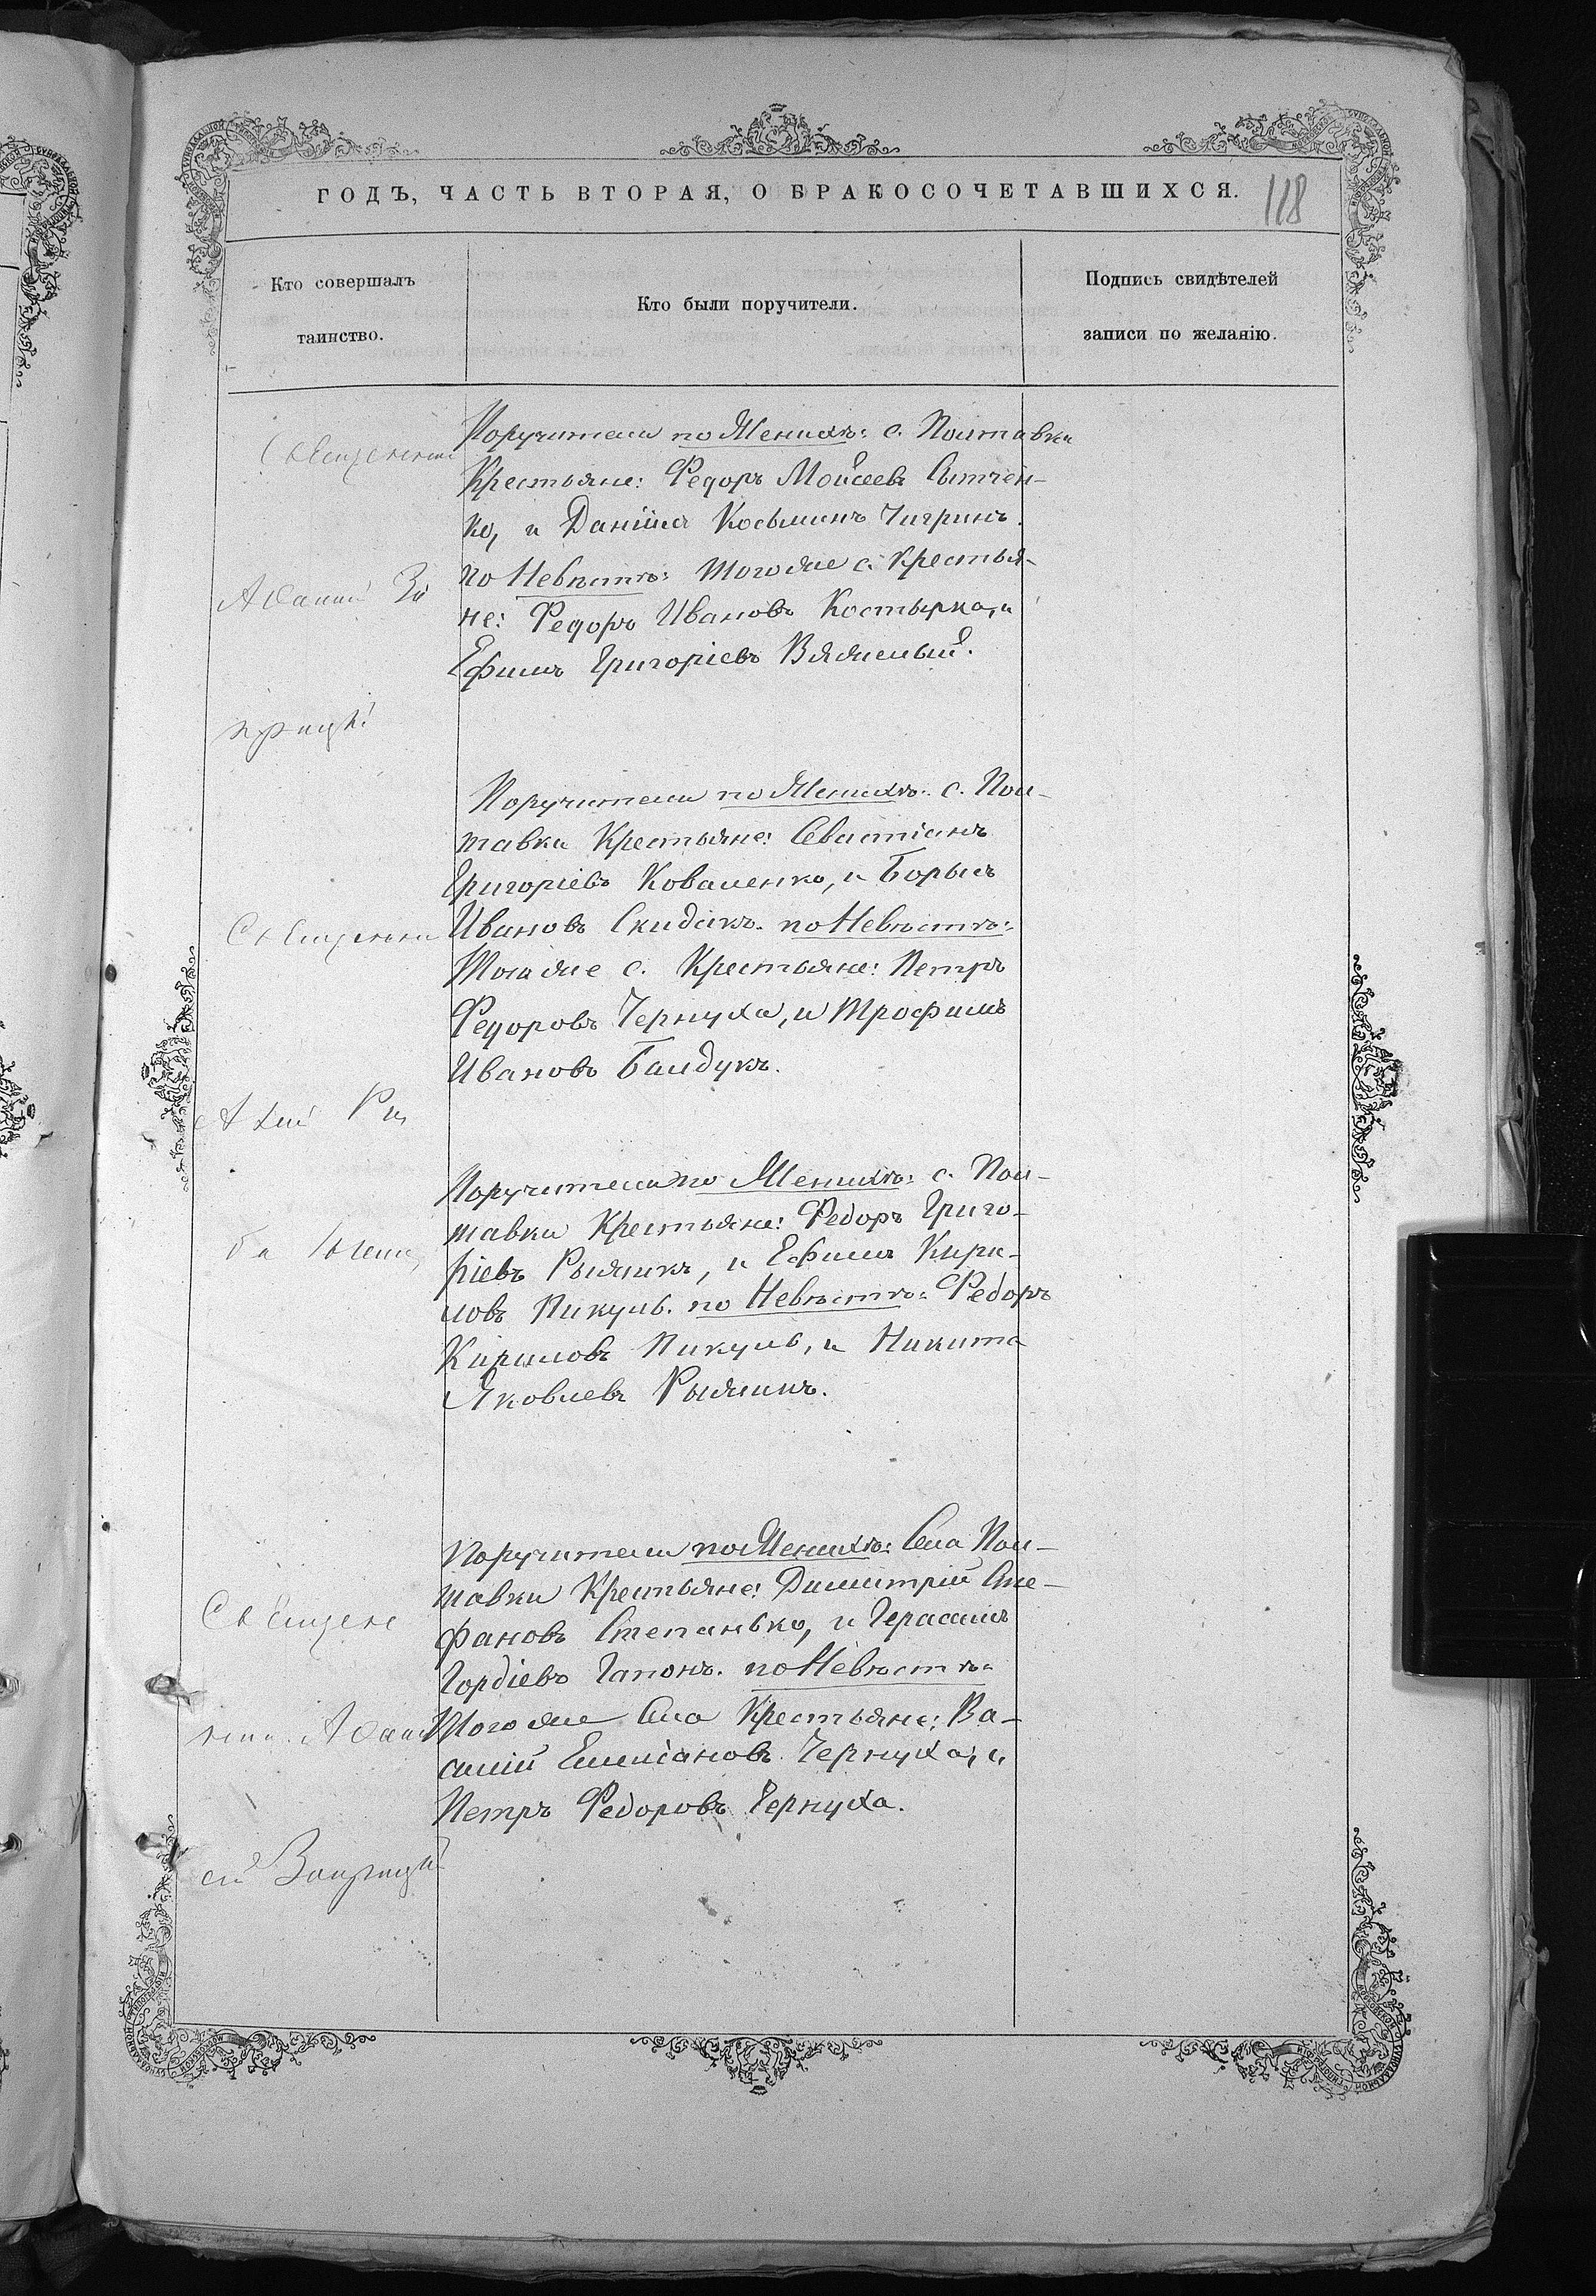 ГОДЪ, ЧАСТЬ ВТОРАЯ, О БРАКОСОЧЕТАВШИХСЯ.
118
Кто совершалъ
таинство.
Кто были поручители.
Подпись свидѣтелей
записи по желанію.
Поручители по Женихѣ: с. Полтавки
Крестьяне: Федоръ Моисеевъ
ко, и Даніилъ Косьминъ Чигринъ.
по Невѣстѣ: Тогоже с. Крестья-
не: Федоръ Ивановъ Костырка, и
Ефимъ Григоріевъ Вяжемый.
Священникъ
Поручители по Женихѣ: с. Пол-
тавки Крестьяне: Севастіанъ
Григоріевъ Коваленко, и Борисъ
Ивановъ Скидакъ. по Невѣстѣ:
Тогоже с. Крестьяне: Петръ
Федоровъ Чернуха, и Трофимъ
Ивановъ Балдукъ.
Священни
Поручители по Женихѣ: с. Пол-
тавки Крестьяне: Федоръ Григо-
ріевъ Рыжикъ, и Ефимъ Кири-
ловъ Пикуль. по Невѣстѣ: Федоръ
Кириловъ Пикуль, и Никита
Яковлевъ Рыжикъ.
Поручители по Женихѣ: Села Пол-
тавки Крестьяне: Димитрій Сте-
фановъ Степанько, и Герасимъ
Гордіевъ Гапонъ. по Невѣстѣ:
Тогоже Села Крестьяне: Ва-
силій Емиліановъ Чернуха, и
Петръ Федоровъ Чернуха.
Священ